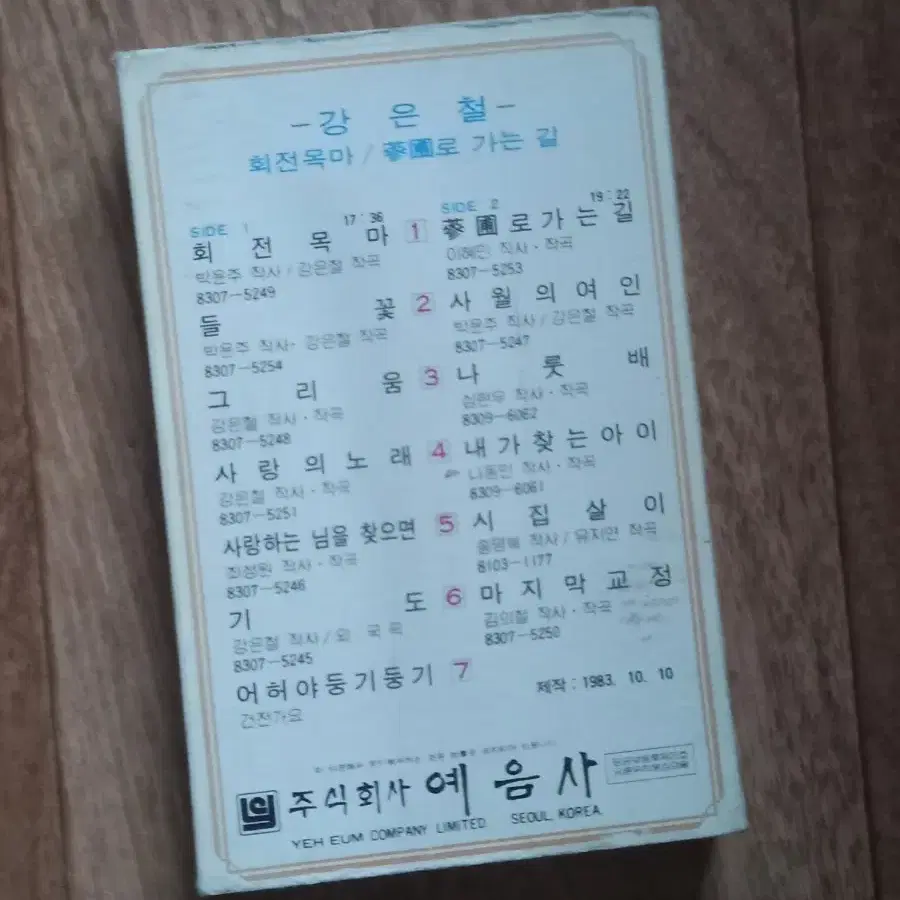 -강 은 철-
회전목마 / 蔘圃로 가는 길
SIDE 1
17:36
회 전 목 마 1
박윤주 작사 / 강은철 작곡
8307-5249
들 꽃 2
박윤주 작사· 강은철 작곡
8307-5254
그 리 움 3
강은철 작사·작곡
8307-5248
사 랑 의 노 래 4
강은철 작사·작곡
8307-5251
사랑하는 님을 찾으면 5
최성원 작사·작곡
8307-5246
기 도 6
강은철 작사 / 외 국 곡
8307-5245
어허야둥기둥기 7
건전가요
SIDE 2
19:22
蔘圃로가는길
이혜민 작사·작곡
8307-5253
사월의여인
박윤주 작사 / 강은철 작곡
8307-5247
나 룻 배
심현우 작사·작곡
8309-6062
내가찾는아이
나동민 작사·작곡
8309-6061
시 집 살 이
작사 / 유지연 작곡
8103-1177
마지막교정
김의철 작사·작곡
8307-5250
제작: 1983. 10. 10
주식회사 예음사
YEH EUM COMPANY LIMITED SEOUL, KOREA